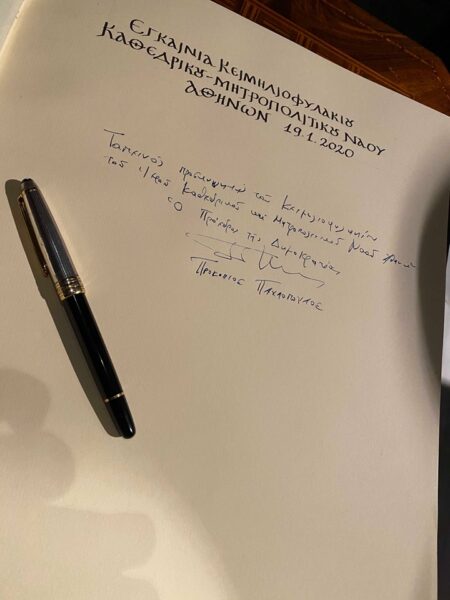 ΕΓΚΑΙΝΙΑ ΚΕΙΜΗΛΙΟΦΥΛΑΚΙΟΥ
ΚΑΘΕΔΡΙΚΟΥ-ΜΗΤΡΟΠΟΛΙΤΙΚΟΥ ΝΑΟΥ
ΑΘΗΝΩΝ 19.1.2020
Ταπεινός προσκυνητής του Κειμηλιοφυλακίου
του Ιερού Καθεδρικού και Μητροπολιτικού Ναού
Ο Πρόεδρος της Δημοκρατίας
Προκόπιος Παυλόπουλος